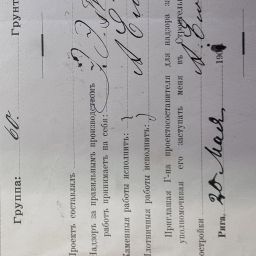 Группа: 60. Грунт
Проектъ составилъ
Надзоръ за правильнымъ производствомъ
работъ принимаетъ на себя:
Каменныя работы исполнитъ:
Плотничныя работы исполнитъ:
Приглашая Г-на проектосоставителя для надзора за
уполномочивая его заступать меня въ Строительн
постройки
Рига, 20 Мая 190